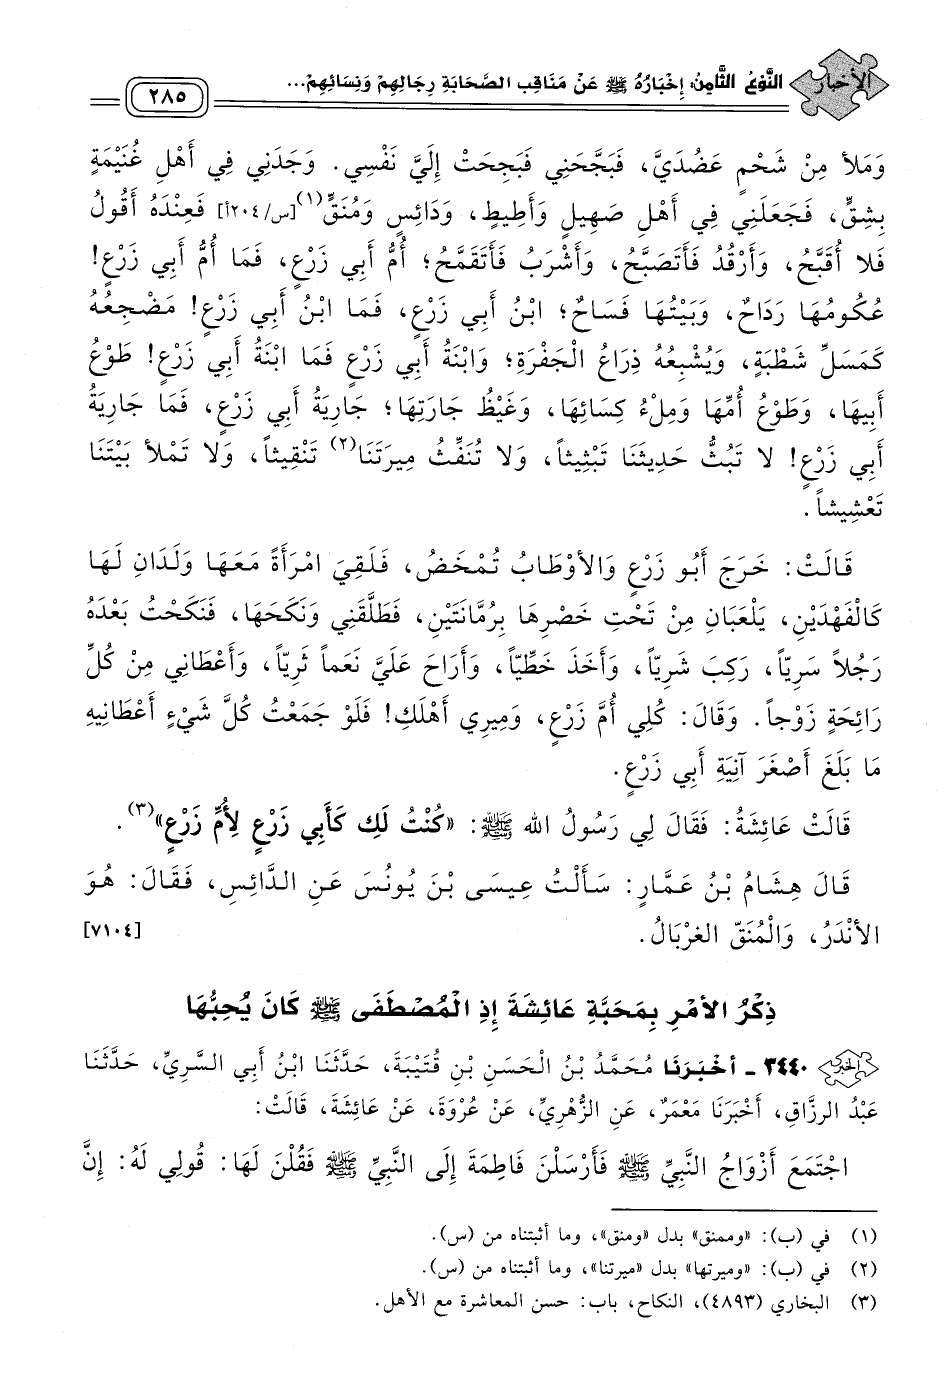 الأخبار النَّوْعُ الثَّامِنُ: إِخْبَارُهُ ﷺ عَنْ مَنَاقِبِ الصَّحَابَةِ رِجَالِهِمْ وَنِسَائِهِمْ... ٢٨٥
وَمَلأَ مِنْ شَحْمٍ عَضُدَيَّ، فَبَجَّحَنِي فَبَجِحَتْ إِلَيَّ نَفْسِي. وَجَدَنِي فِي أَهْلِ غُنَيْمَةٍ
بِشِقٍّ، فَجَعَلَنِي فِي أَهْلِ صَهِيلٍ وَأَطِيطٍ، وَدَائِسٍ وَمُنَقٍّ(١)[س/٢٠٤أ] فَعِنْدَهُ أَقُولُ
فَلا أُقَبَّحُ، وَأَرْقُدُ فَأَتَصَبَّحُ، وَأَشْرَبُ فَأَتَقَمَّحُ؛ أُمُّ أَبِي زَرْعٍ، فَمَا أُمُّ أَبِي زَرْعٍ!
عُكُومُهَا رَدَاحٌ، وَبَيْتُهَا فَسَاحٌ؛ ابْنُ أَبِي زَرْعٍ، فَمَا ابْنُ أَبِي زَرْعٍ! مَضْجِعُهُ
كَمَسَلِّ شَطْبَةٍ، وَيُشْبِعُهُ ذِرَاعُ الْجَفْرَةِ؛ وَابْنَةُ أَبِي زَرْعٍ فَمَا ابْنَةُ أَبِي زَرْعٍ! طَوْعُ
أَبِيهَا، وَطَوْعُ أُمِّهَا وَمِلْءُ كِسَائِهَا، وَغَيْظُ جَارَتِهَا؛ جَارِيَةُ أَبِي زَرْعٍ، فَمَا جَارِيَةُ
أَبِي زَرْعٍ! لا تَبُثُّ حَدِيثَنَا تَبْثِيثاً، وَلا تُنَقِّثُ مِيرَتَنَا(٢) تَنْقِيثاً، وَلا تَملأُ بَيْتَنَا
تَعْشِيشاً.
قَالَتْ: خَرَجَ أَبُو زَرْعٍ وَالأَوْطَابُ تُمْخَضُ، فَلَقِيَ امْرَأَةً مَعَهَا وَلَدَانِ لَهَا
كَالْفَهْدَيْنِ، يَلْعَبَانِ مِنْ تَحْتِ خَصْرِهَا بِرُمَّانَتَيْنِ، فَطَلَّقَنِي وَنَكَحَهَا، فَنَكَحْتُ بَعْدَهُ
رَجُلاً سَرِيّاً، رَكِبَ شَرِيّاً، وَأَخَذَ خَطِّيّاً، وَأَرَاحَ عَلَيَّ نَعَماً ثَرِيّاً، وَأَعْطَانِي مِنْ كُلِّ
رَائِحَةٍ زَوْجاً. وَقَالَ: كُلِي أُمَّ زَرْعٍ، وَمِيرِي أَهْلَكِ! فَلَوْ جَمَعْتُ كُلَّ شَيْءٍ أَعْطَانِيهِ
مَا بَلَغَ أَصْغَرَ آنِيَةِ أَبِي زَرْعٍ.
قَالَتْ عَائِشَةُ: فَقَالَ لِي رَسُولُ الله ﷺ: «كُنْتُ لَكِ كَأَبِي زَرْعٍ لِأُمِّ زَرْعٍ»(٣).
قَالَ هِشَامُ بْنُ عَمَّارٍ: سَأَلْتُ عِيسَى بْنَ يُونُسَ عَنِ الدَّائِسِ، فَقَالَ: هُوَ
الأَنْدَرُ، وَالْمُنَقّ الغرْبَالُ. [٧١٠٤]
ذِكْرُ الأَمْرِ بِمَحَبَّةِ عَائِشَةَ إِذِ الْمُصْطَفَى ﷺ كَانَ يُحِبُّهَا
الخبر ٣٤٤٠ - أَخْبَرَنَا مُحَمَّدُ بْنُ الْحَسَنِ بْنِ قُتَيْبَةَ، حَدَّثَنَا ابْنُ أَبِي السَّرِيِّ، حَدَّثَنَا
عَبْدُ الرزَّاقِ، أَخْبَرَنَا مَعْمَرٌ، عَنِ الزُّهْرِيِّ، عَنْ عُرْوَةَ، عَنْ عَائِشَةَ، قَالَتْ:
اجْتَمَعَ أَزْوَاجُ النَّبِيِّ ﷺ فَأَرْسَلْنَ فَاطِمَةَ إِلَى النَّبِيِّ ﷺ فَقُلْنَ لَهَا: قُولِي لَهُ: إِنَّ
(١) في (ب): «وممنق» بدل «ومنق»، وما أثبتناه من (س).
(٢) في (ب): «وميرتها» بدل «ميرتنا»، وما أثبتناه من (س).
(٣) البخاري (٤٨٩٣)، النكاح، باب: حسن المعاشرة مع الأهل.